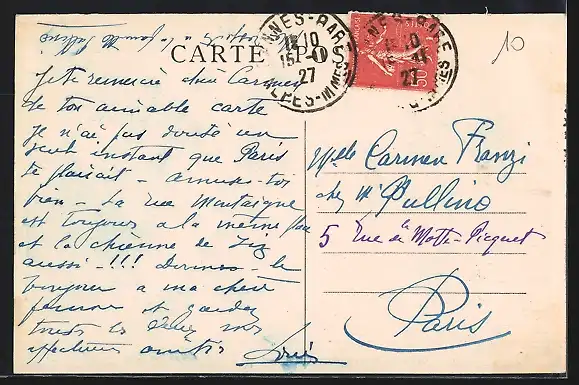 CARTE POS
10
CANNES-GARE
15 10
15 -11
27
ALPES-MMES
50
Je te remercie chère Carmen
de ton aimable carte
je n'ai pas douté un
seul instant que Paris
te plairait - amuse toi
bien - La rue Montaigne
est toujours a la même place
et la chienne de
aussi - !!! Donnes - le
bonjour a ma chère
femme et gardez
toutes les deux mes
affectueuses amitiés
Melle Carmen Franzi
chez Mr Pullino
5 Rue de la Motte-Picquet
Paris